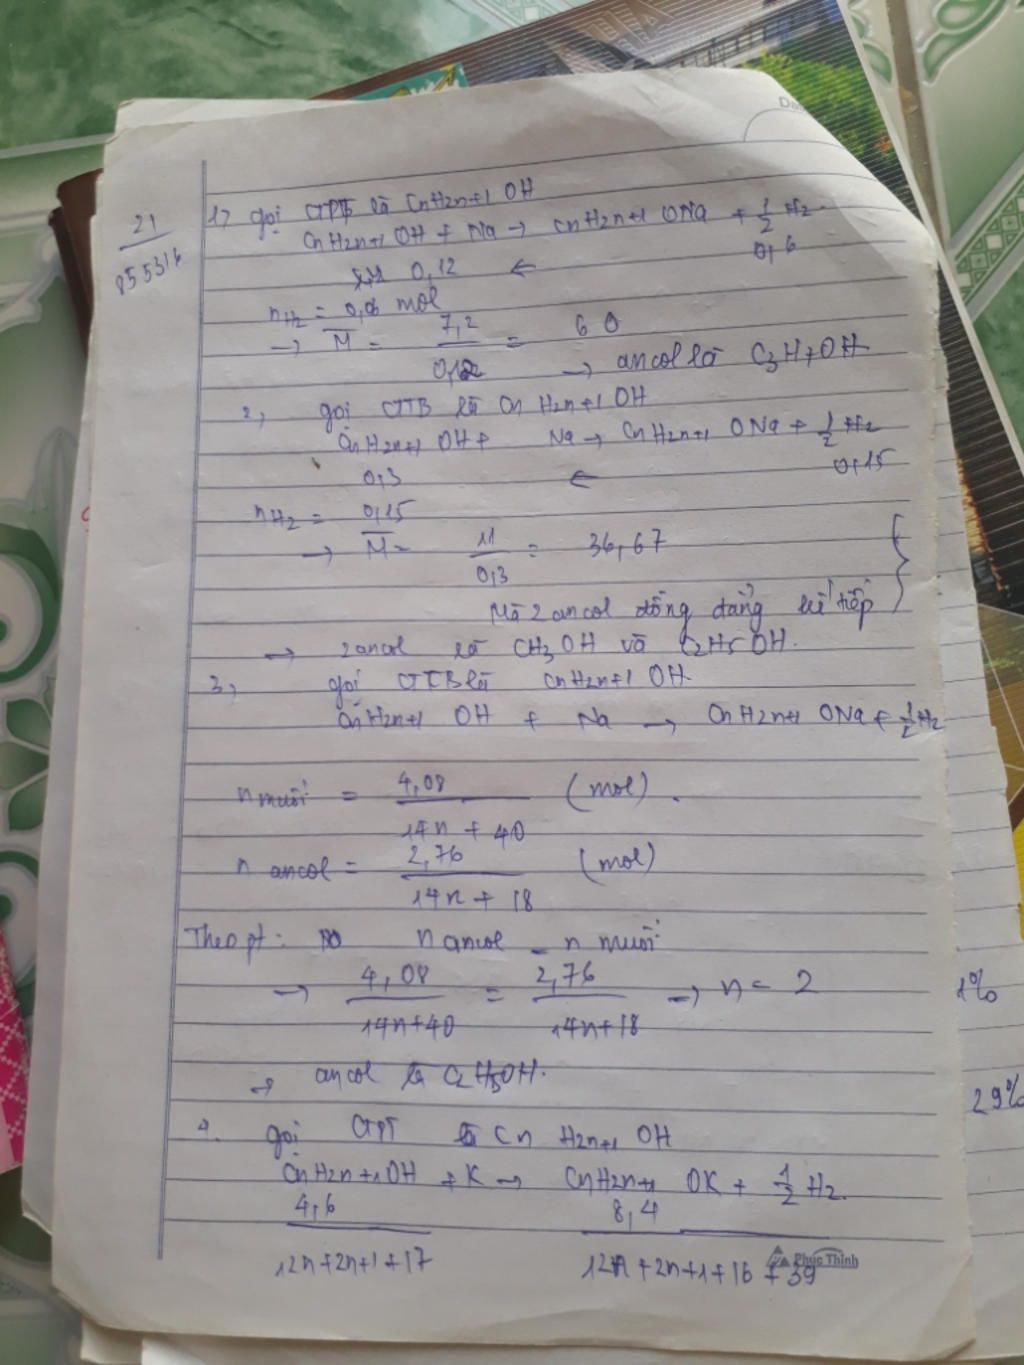 21
855316
1, gọi CTPT là CnH2n+1 OH
CnH2n+1 OH + Na → CnH2n+1 ONa + 1/2 H2.
0,12 ← 0,6
nH2 = 0,06 mol
→ M = 7,2/0,12 = 60
→ ancol là C3H7OH
2, gọi CTTB là Cn H2n+1 OH
CnH2n+1 OH + Na → CnH2n+1 ONa + 1/2 H2
0,3 ← 0,15
nH2 = 0,15
→ M = 11/0,3 = 36,67
Mà 2 ancol đồng đẳng kế tiếp
→ 2 ancol là CH3 OH và C2H5 OH.
3, gọi CTTB là CnH2n+1 OH.
CnH2n+1 OH + Na → CnH2n+1 ONa + 1/2 H2
n muối = 4,08/14n + 40 (mol).
n ancol = 2,76/14n + 18 (mol)
Theo pt: n ancol = n muối
→ 4,08/14n+40 = 2,76/14n+18 → n = 2
1%
→ ancol là C2H5OH.
29%
4. gọi CTPT là Cn H2n+1 OH
CnH2n+1OH + K → CnH2n+1 OK + 1/2 H2.
4,6/12n+2n+1+17 8,4/12n+2n+1+16+39
Phúc Thịnh